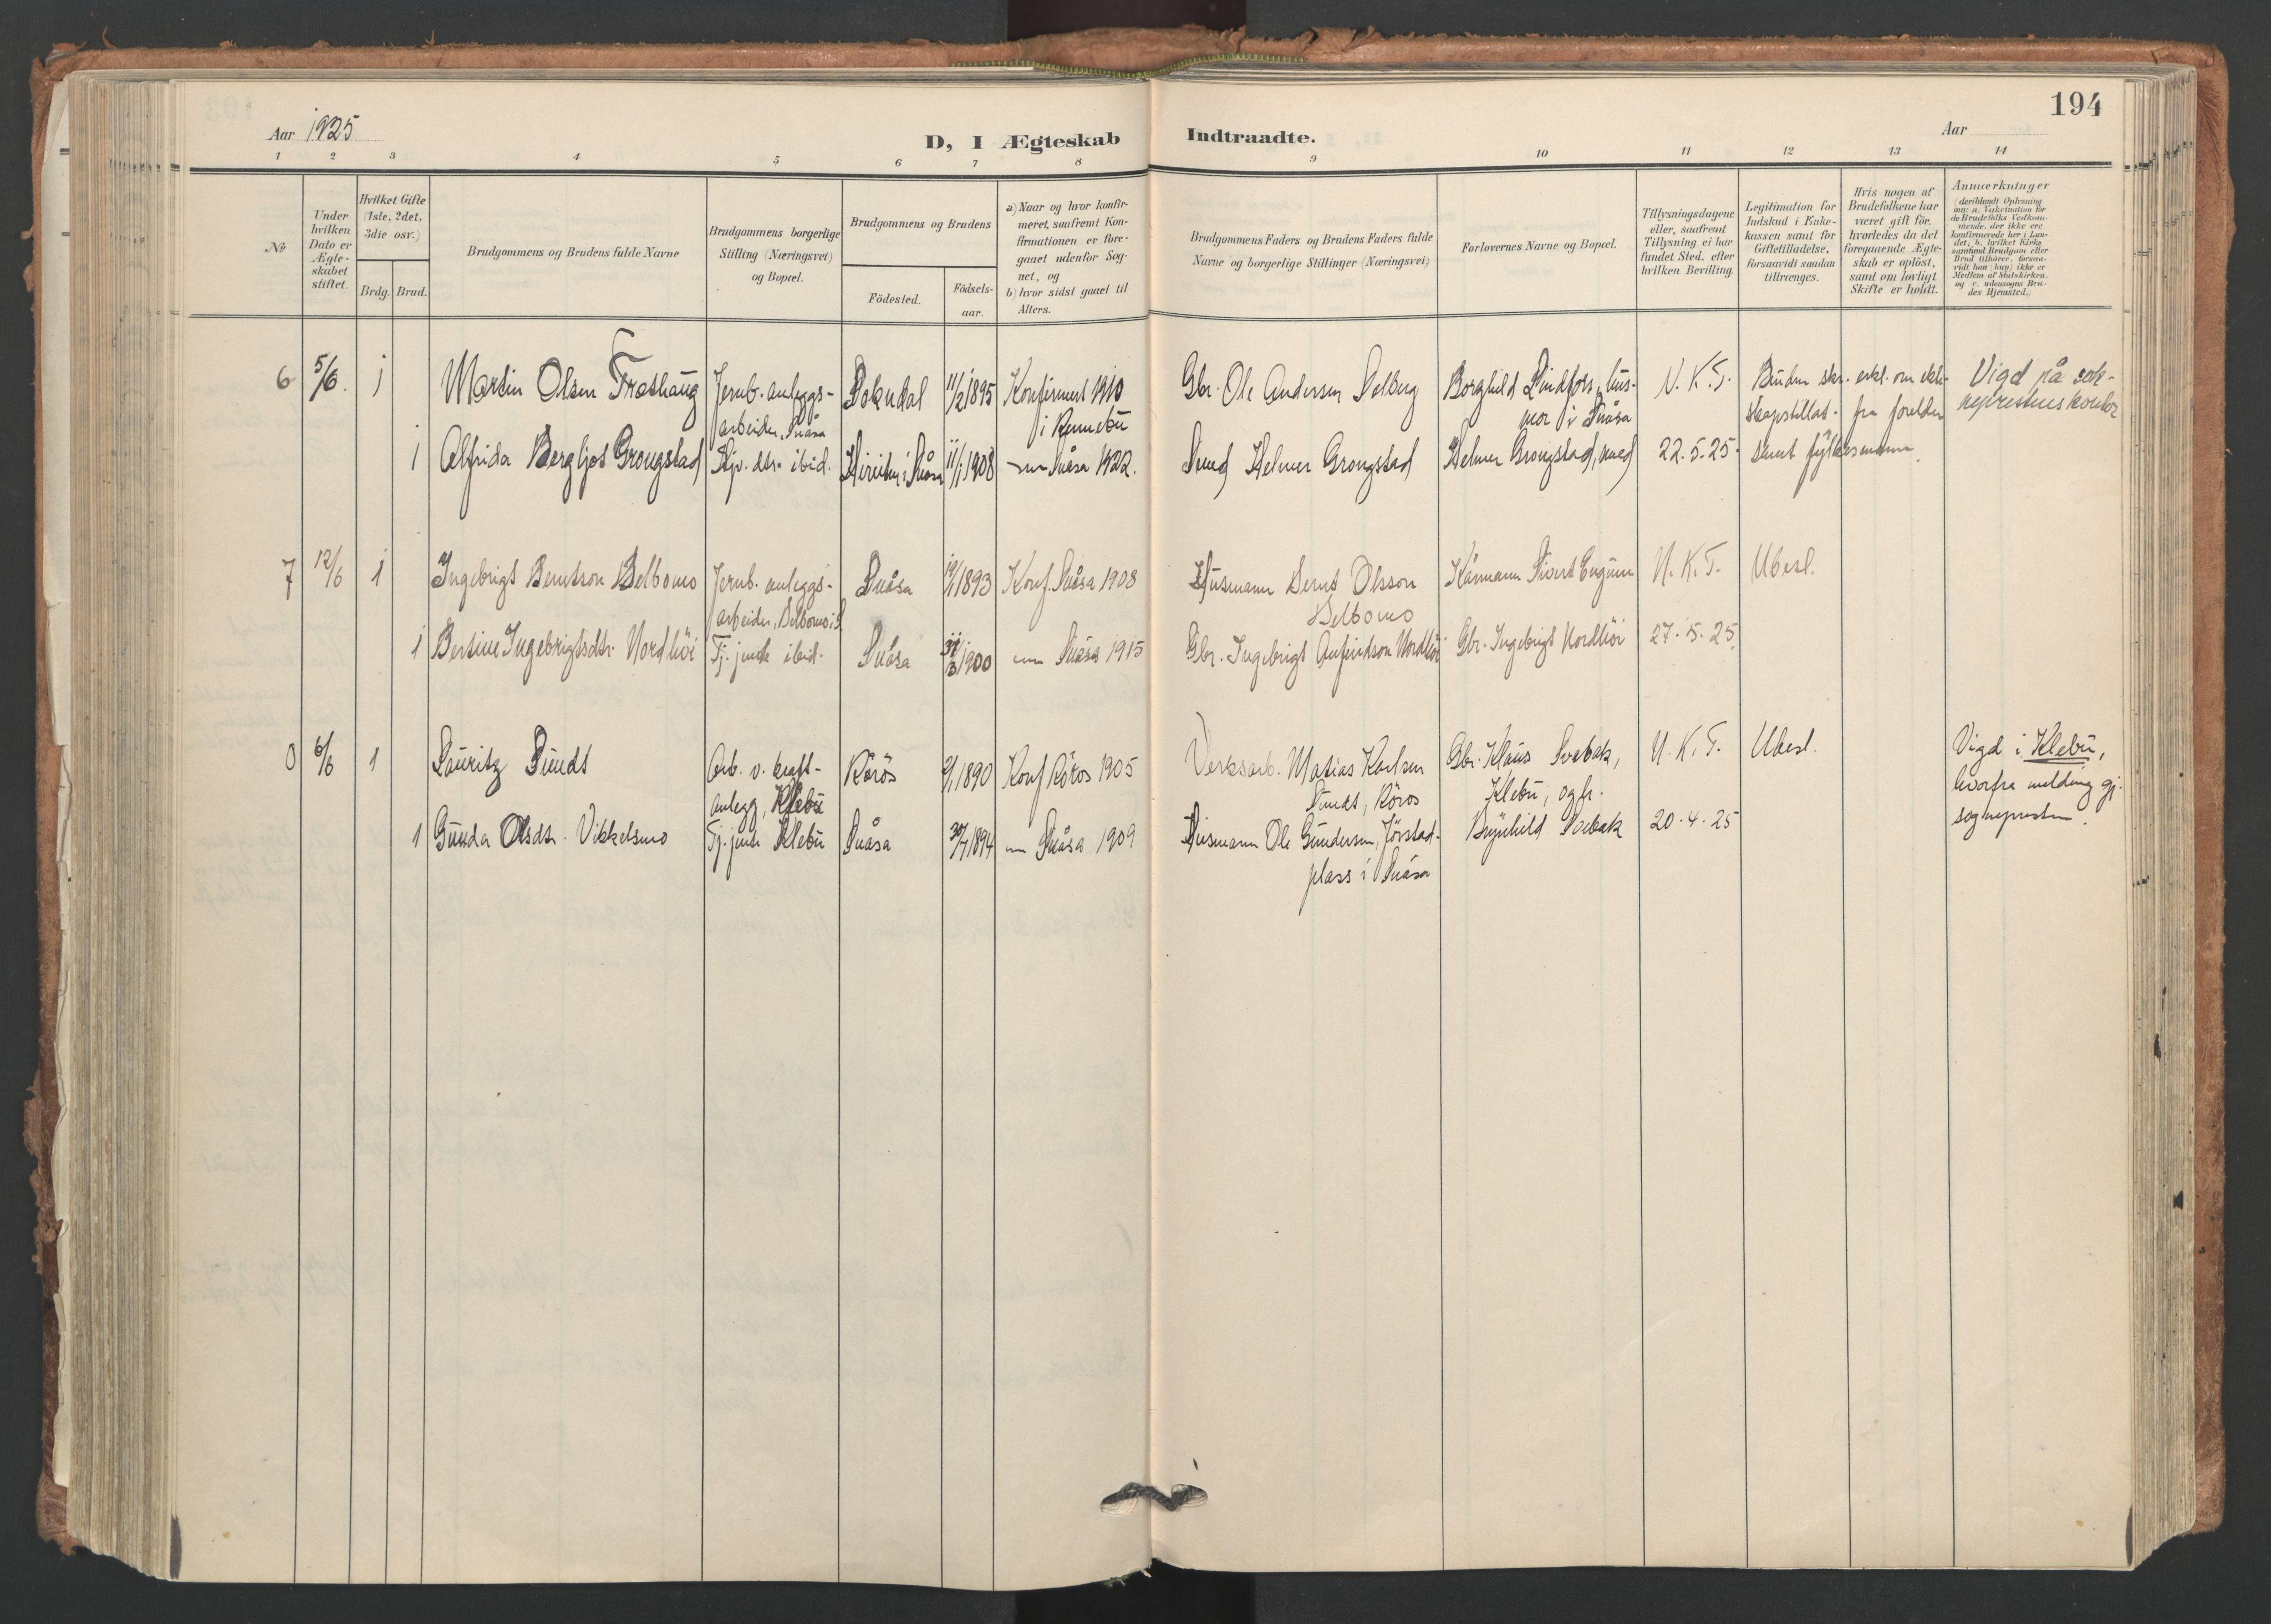 194
Aar 1925
D, I Ægteskab Indtraadte.
Aar
1 2 3 4 5 6 7 8 9 10 11 12 13 14
№
Under
hvilken
Dato er
Ægte-
skabet
stiftet.
Hvilket Gifte
(1ste, 2det,
3die osv.)
Brdg. Brud.
Brudgommens og Brudens fulde Navne
Brudgommens borgerlige
Stilling (Næringsvei)
og Bopæl.
Brudgommens og Brudens
Födested.
Födsels-
aar.
a) Naar og hvor konfir-
meret, saafremt Kon-
firmationen er fore-
gaaet udenfor Sog-
net, og
b) hvor sidst gaaet til
Alters.
Brudgommens Faders og Brudens Faders fulde
Navne og borgerlige Stillinger (Næringsvei)
Forlovernes Navne og Bopæl.
Tillysningsdagene
eller, saafremt
Tillysning ei har
fundet Sted, efter
hvilken Bevilling.
Legitimation for
Indskud i Enke-
kassen samt for
Giftetilladelse,
forsaavidt saadan
tiltrænges.
Hvis nogen af
Brudefolkene har
været gift för,
hvorledes da det
foregaaende Ægte-
skab er oplöst,
samt om lovligt
Skifte er holdt.
Anmærkninger
(deriblandt Oplysning
om: a. Vakcination for
de Brudefolks Vedkom-
mende, der ikke ere
konfirmerede her i Lan-
det; b. hvilket Kirke-
samfund Brudgom eller
Brud tilhörer, forsaa-
vidt han (hun) ikke er
Medlem af Statskirken,
og c. udensogns Bru-
des Hjemsted.)
6 5/6. 1 Martin Olsen Træthaug
Jernb. anleggs-
arbeider, Snåsa
11/2 1895
Konfirmert 1910
i Rennebu
Gbr. Ole Andersen
Borghild Lindfors, hus-
mor i Snåsa
N. K. T.
Vigd på sok-
neprestens kontor
1 Alfrida Bergljot Grongstad
ibid.
i Snåsa
11/1 1908
Snåsa 1922.
Smed Helmer Grongstad
Helmer Grongstad, smed
22.5.25.
samt fylkesmann.
7 12/6 1 Ingebrigt Berntson Belbomo
Jernb. anleggs-
arbeider, Belbomo i S.
Snåsa
1893
Konf. Snåsa 1908
Husmann Bernt Olsson
Belbomo
Kårmann Sivert
N. K. T.
Ubesl.
1 Bertine Ingebrigtsdtr. Nordhöi
Tj. jente ibid.
Snåsa
1900
Snåsa 1915
Gbr. Ingebrigt Anfindson Nordhöi
Gbr. Ingebrigt Nordhöi
27.5.25.
6/6 1 Lauritz Sundt
Arb. v. kraft-
anlegg, Klebu
Röros
1890
Konf Röros 1905
Verksarb. Matias Karlsen
Sundt, Röros
Gbr. Klaus Svebak,
Klebu, og fr.
N. K. T.
Ubesl.
Vigd i Klebu,
hvorfra melding gj.
sognepresten.
1 Gunda Olsdtr. Vikkelsmo
Tj. jente Klebu
Snåsa
30/7 1894
Snåsa 1909
Husmann Ole Gundersen, Jörstad-
plass i Snåsa
Brynhild Svebak
20.4.25